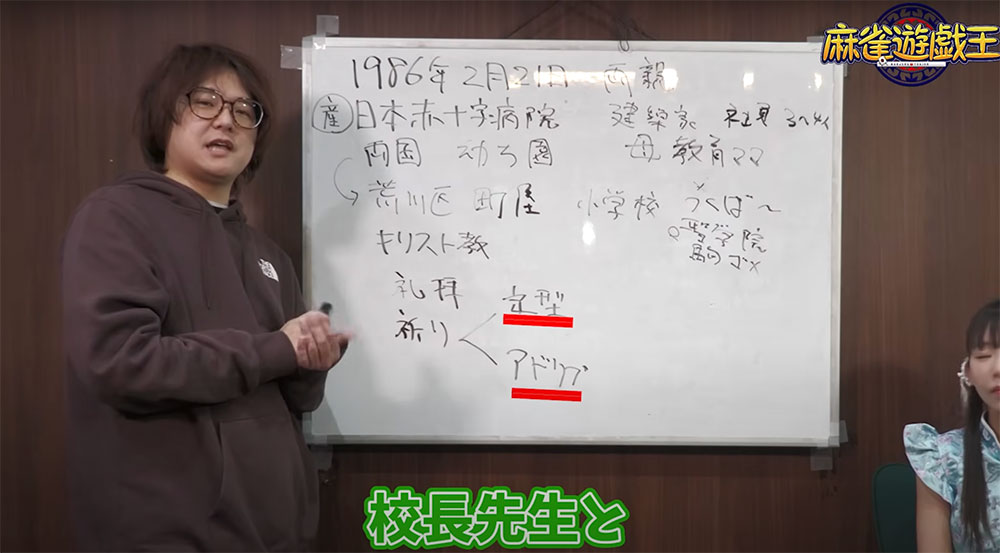 麻雀遊戯王
1986年2月21日 両親
産 日本赤十字病院 建築家
両国 幼ち園 母 教育ママ
荒川区 町屋 小学校 つくば〜
聖学院
駒ゴメ
キリスト教
礼拝
祈り
定型
アドリブ
校長先生と